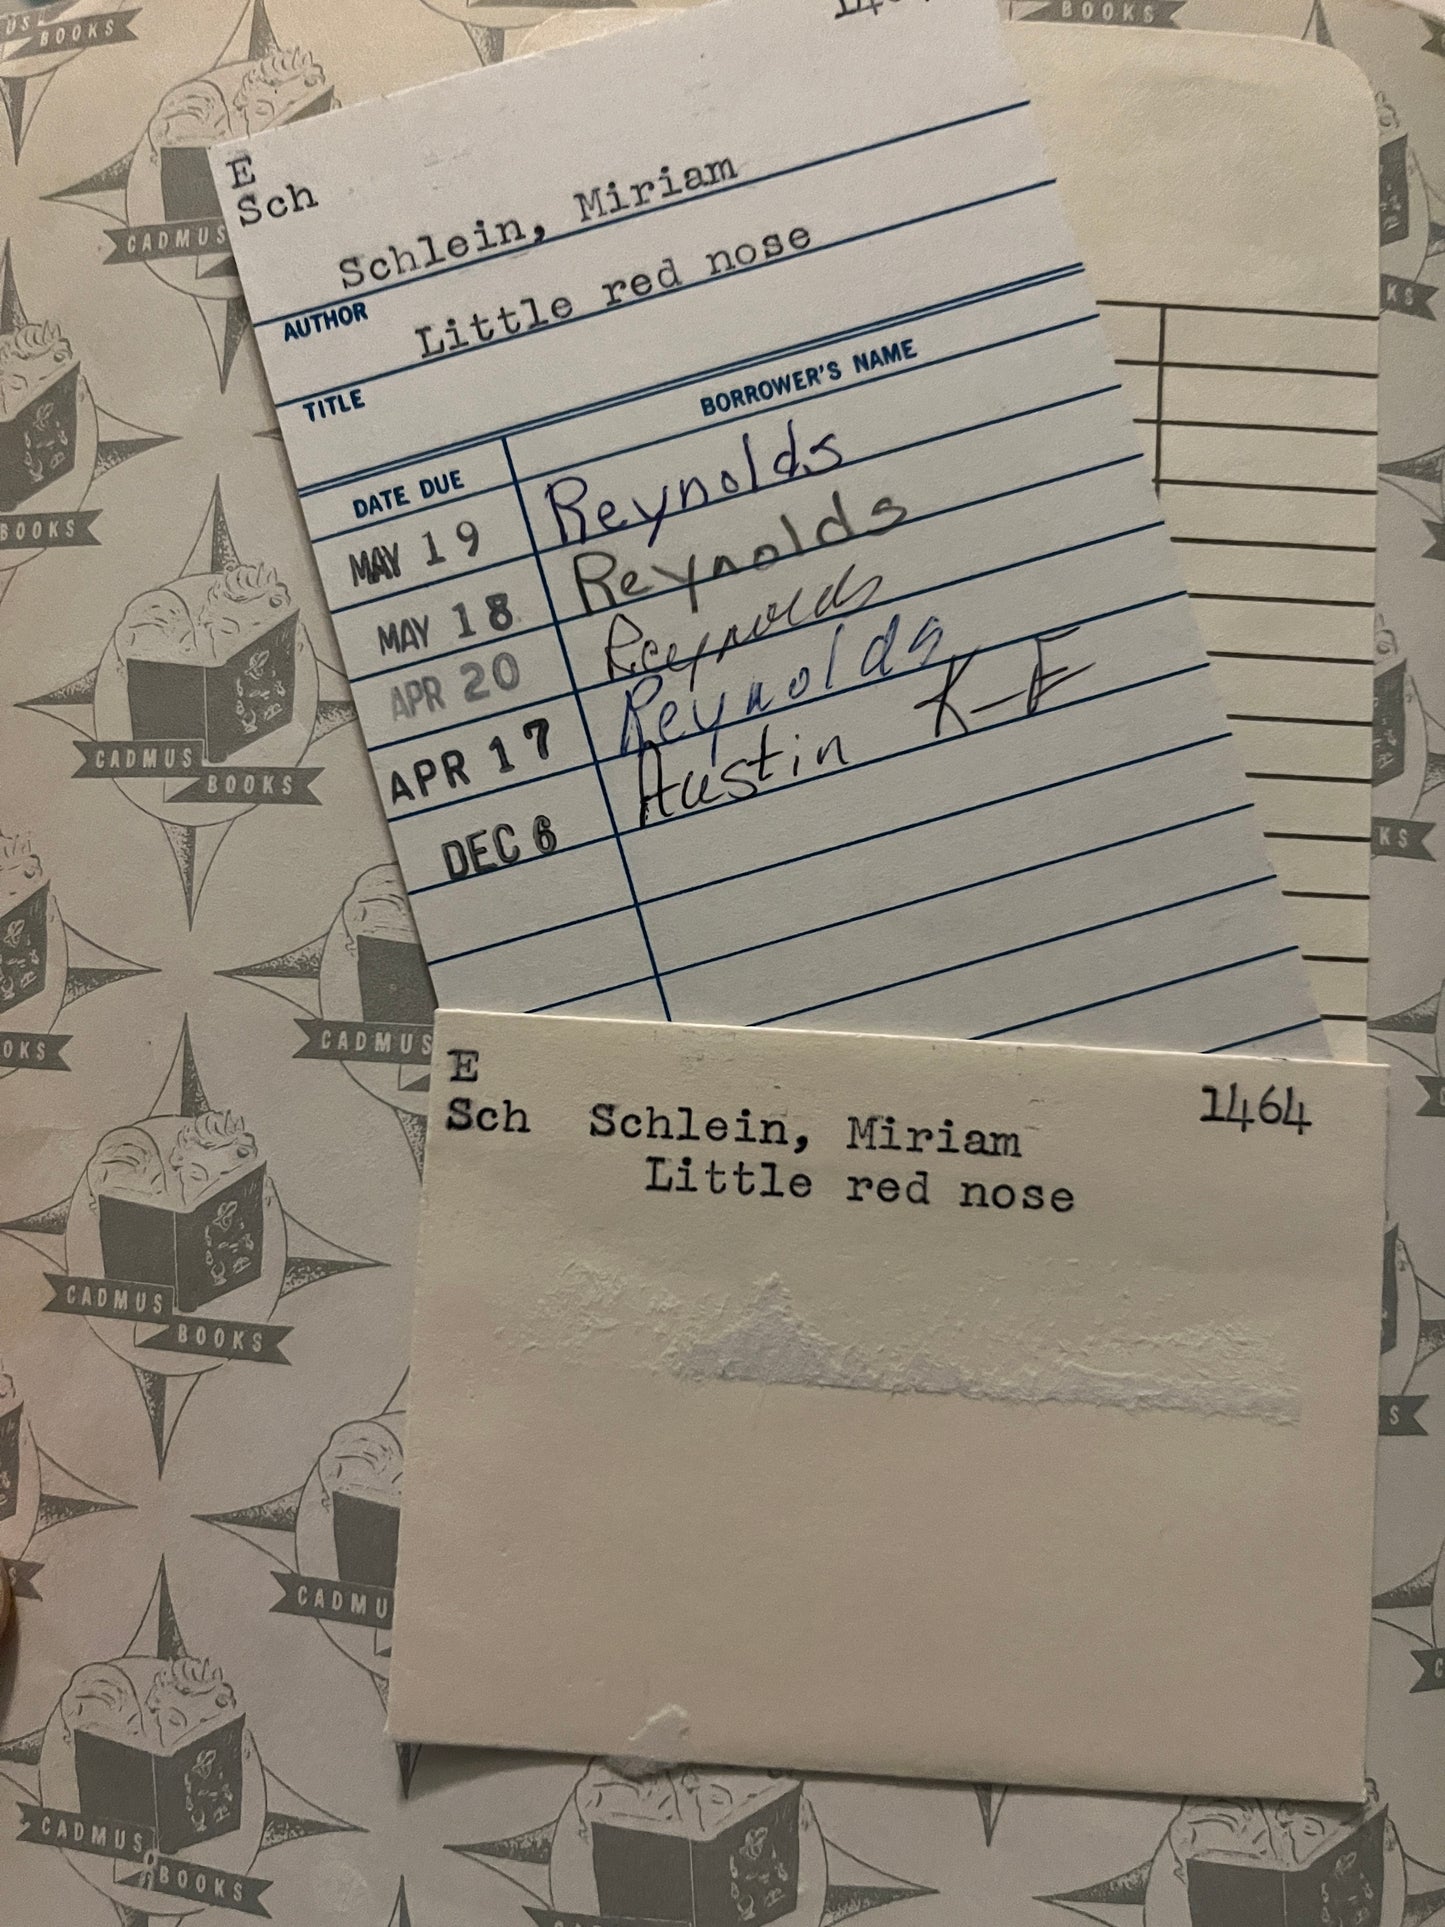 E
Sch
Schlein, Miriam
AUTHOR
Little red nose
TITLE
DATE DUE BORROWER'S NAME
MAY 19 Reynolds
MAY 18 Reynolds
APR 20 Reynolds
APR 17 Reynolds
DEC 6 Austin K-F
E 1464
Sch Schlein, Miriam
Little red nose
BOOKS
BOOKS
CADMUS
BOOKS
CADMUS
BOOKS
CADMUS
CADMUS
BOOKS
CADMU
CADMUS
BOOKS